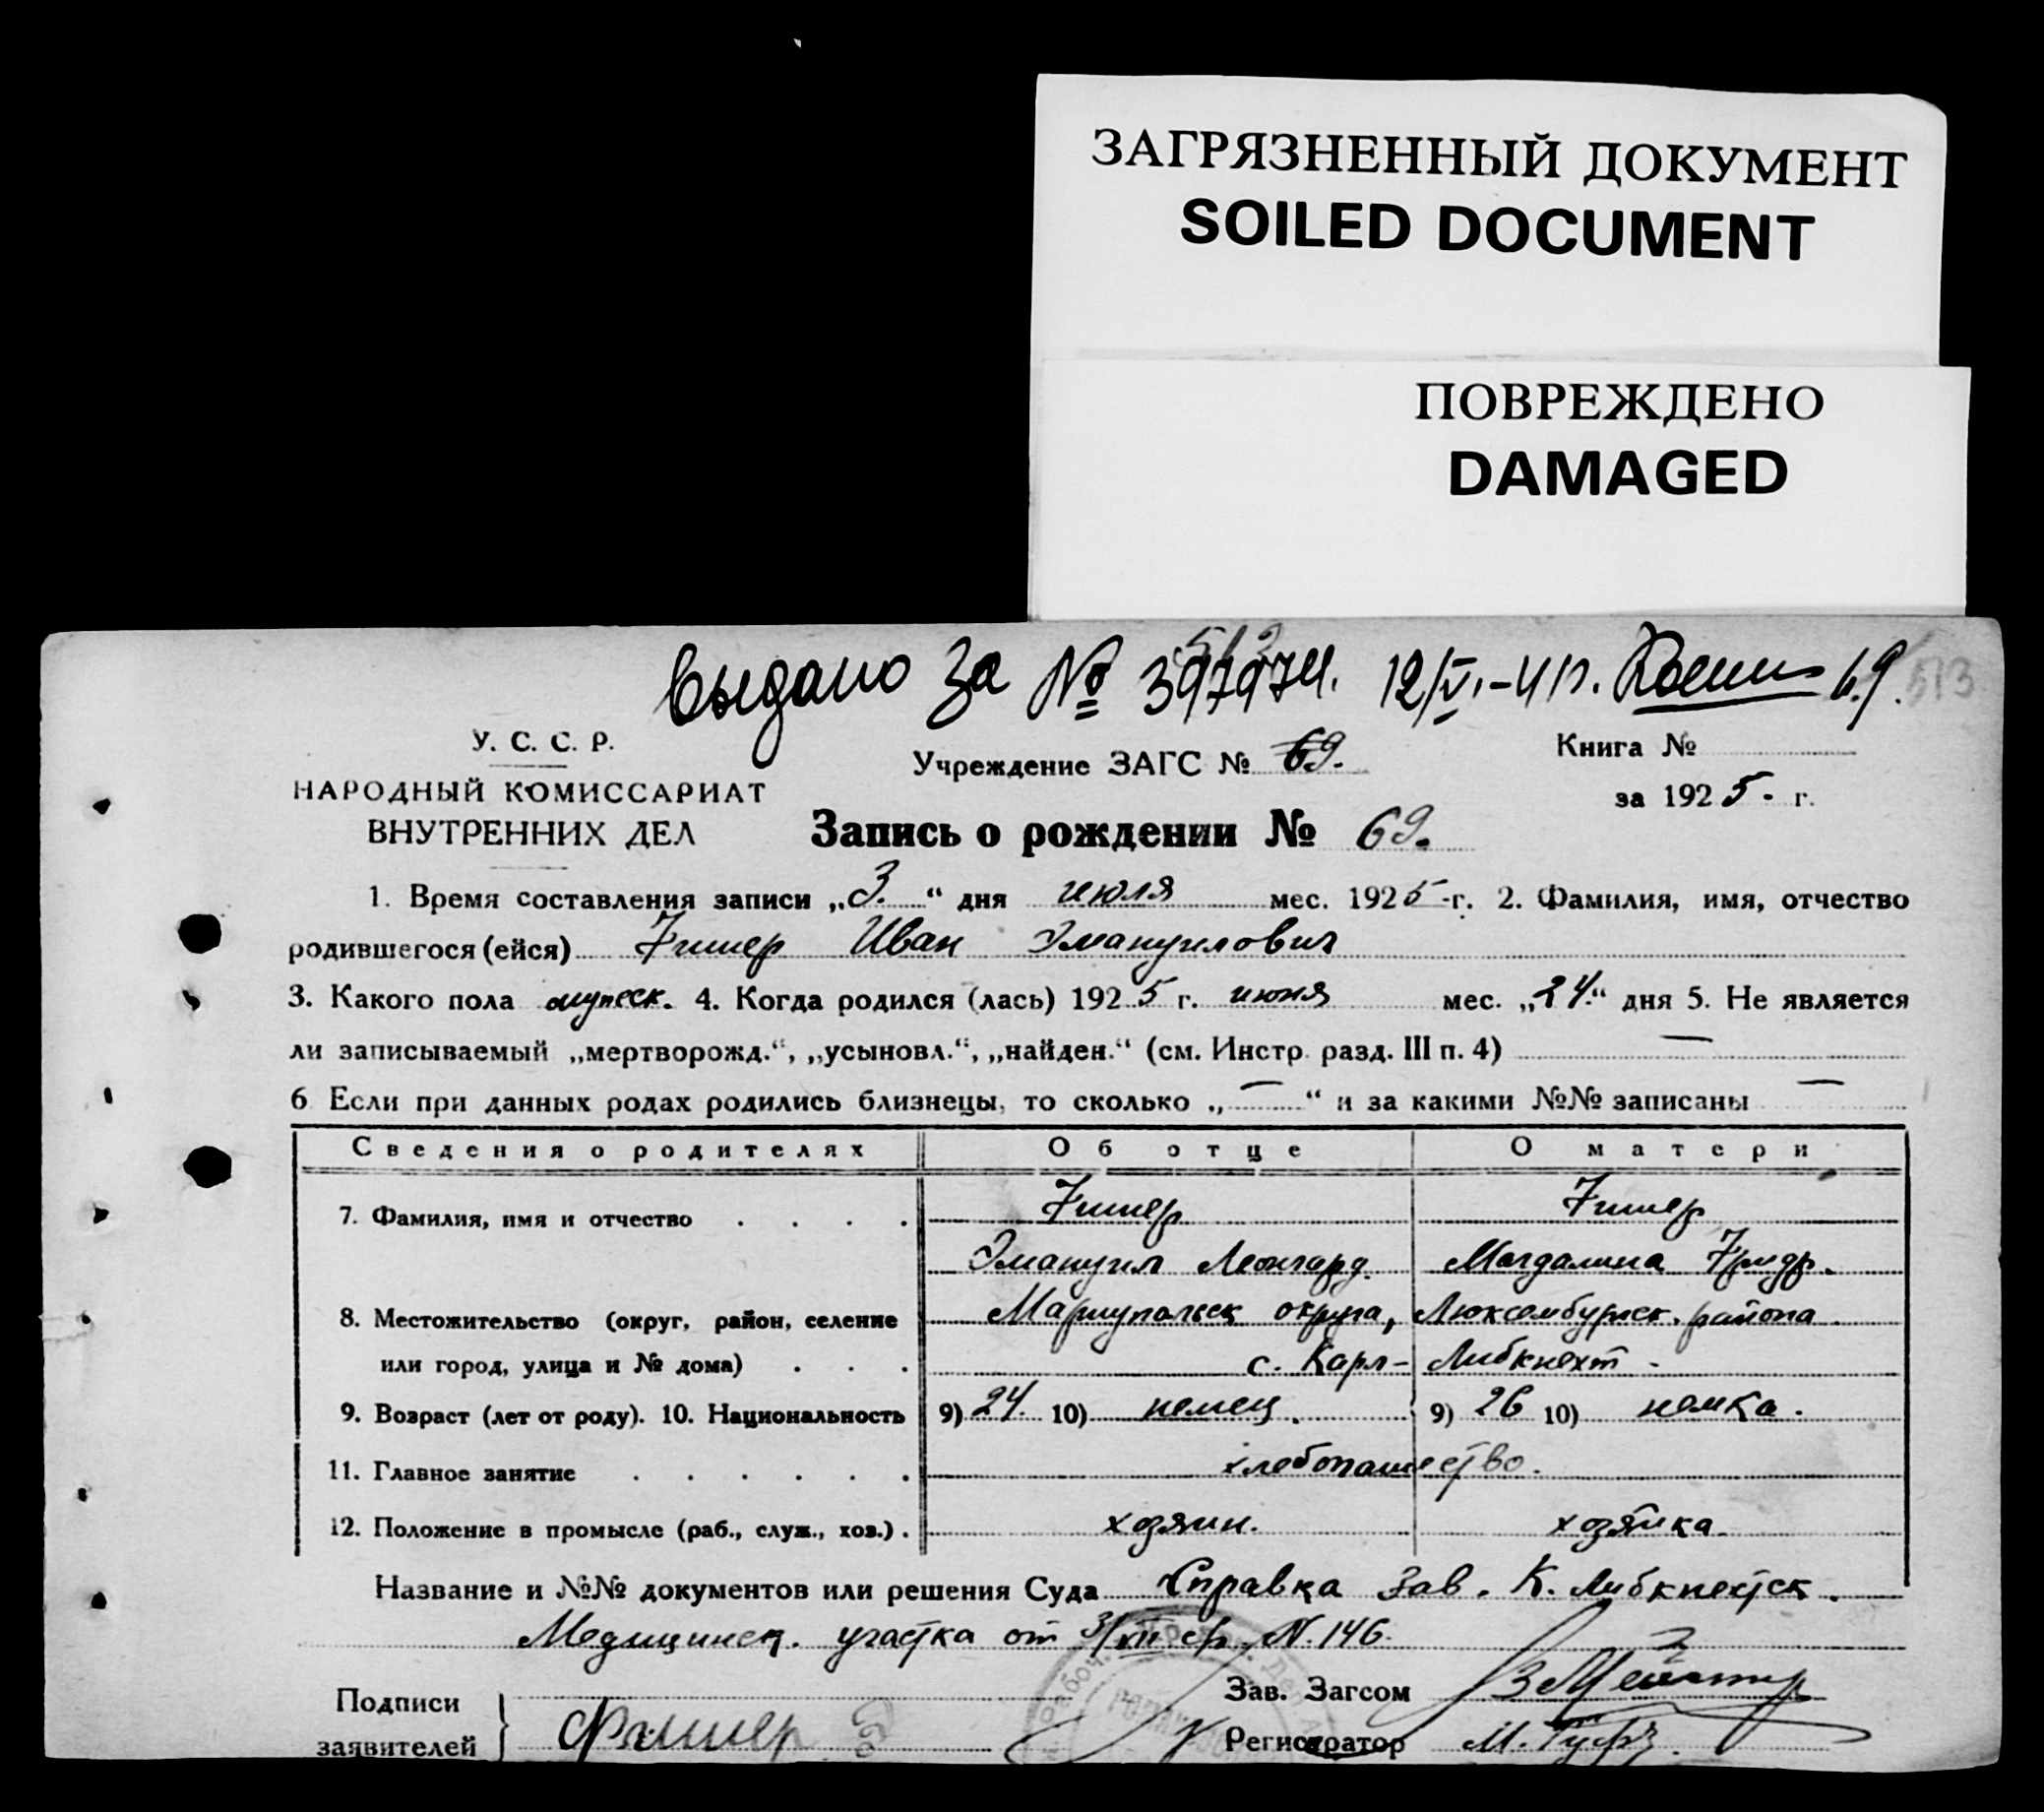 ЗАГРЯЗНЕННЫЙ ДОКУМЕНТ
SOILED DOCUMENT
ПОВРЕЖДЕНО
DAMAGED
513
Выдано за № 397974. 12/VI-41г. 69. 513
У. С. С. Р.
НАРОДНЫЙ КОМИССАРИАТ
ВНУТРЕННИХ ДЕЛ
Учреждение ЗАГС № 69.
Книга №
за 1925. г.
Запись о рождении № 69.
1. Время составления записи „3.“ дня июля мес. 1925-г. 2. Фамилия, имя, отчество
родившегося (ейся) Фишер Иван Эмануилович
3. Какого пола мужеск. 4. Когда родился (лась) 1925 г. июня мес. „24.“ дня 5. Не является
ли записываемый „мертворожд.“, „усыновл.“, „найден.“ (см. Инстр. разд. III п. 4) —
6 Если при данных родах родились близнецы, то сколько „—“ и за какими №№ записаны —
Сведения о родителях Об отце О матери
7. Фамилия, имя и отчество . . . . Фишер Фишер
Эмануил Леонгард. Магдалина Фридр.
8. Местожительство (округ, район, селение Мариупольск округа, Люксембургск. района.
или город, улица и № дома) . . . с. Карл-Либкнехт.
9. Возраст (лет от роду). 10. Национальность 9) 24. 10) немец. 9) 26 10) немка.
11. Главное занятие . . . . . . хлебопашество.
12. Положение в промысле (раб., служ., хоз.) . хозяин. хозяйка.
Название и №№ документов или решения Суда Справка Зав. К. Либкнехтск.
Медицинск. участка от 3/VII ср. N. 146.
Подписи
заявителей
Фишер Э
Зав. Загсом
Регистратор